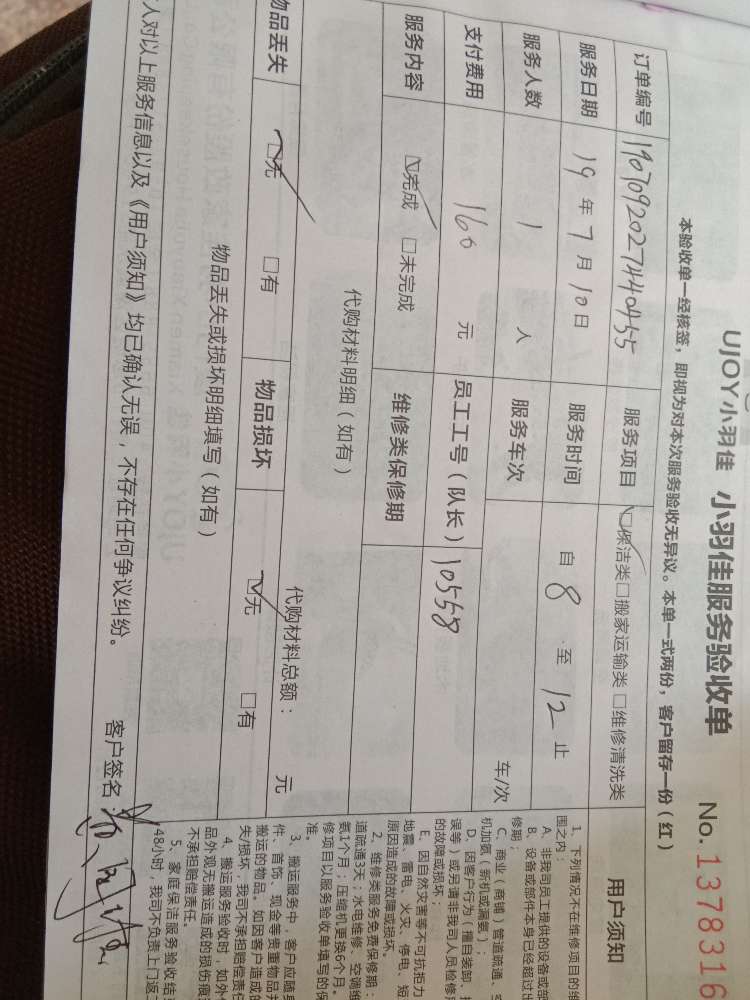 UJOY小羽佳 小羽佳服务验收单 No. 1378316
本验收单一经核签，即视为对本次服务验收无异议。本单一式两份，客户留存一份（红）
订单编号 1907092027440455 服务项目 ☑保洁类 □搬家运输类 □维修清洗类
服务日期 19年7月10日 服务时间 自 8 至 12 止
服务人数 1 人 服务车次 车/次
支付费用 160 元 员工工号（队长） 10558
服务内容 ☑完成 □未完成 维修类保修期
代购材料明细（如有）
代购材料总额： 元
物品丢失 ☑无 □有 物品损坏 ☑无 □有
物品丢失或损坏明细填写（如有）
人对以上服务信息以及《用户须知》均已确认无误，不存在任何争议纠纷。 客户签名：
用户须知
1、下列情况不在维修项目的维
围之内：
A、非我司员工提供的设备或部
B、设备或部件本身已经超过出
修期；
C、商业（商铺）管道疏通、空
机加氨（新机或漏氨）；
D、因客户行为（擅自装卸、
误等）或另请非我司人员检修
的故障或损坏；
E、因自然灾害等不可抗拒力
地震、雷电、火灾、停电、短
原因造成的故障或损坏。
2、维修类服务免费保修期：
道疏通3天；水电维修、空调维
氨1个月；压缩机更换6个月。
修项目以服务验收单填写的保
准。
3、搬运服务中，客户应随身
件、首饰、现金等贵重物品
搬运的物品。如因客户造成的
失/损坏，我司不承担赔偿责任
4、搬运服务验收时，如外
品外观无搬运造成的损伤痕
不承担赔偿责任。
5、家庭保洁服务验收结
48小时，我司不负责上门返工